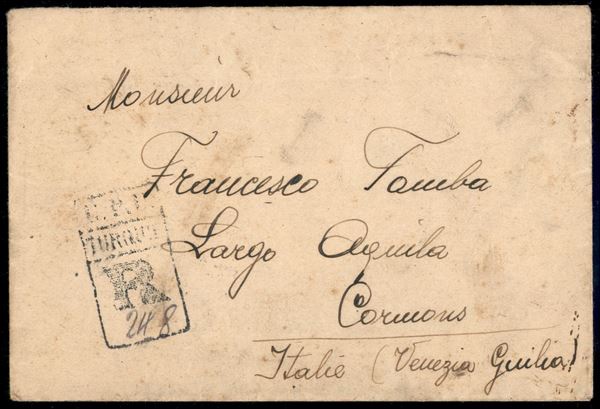 Monsieur
Francesco Tomba
Largo Aquila
Cormons
Italie (Venezia Guilia)
R
248